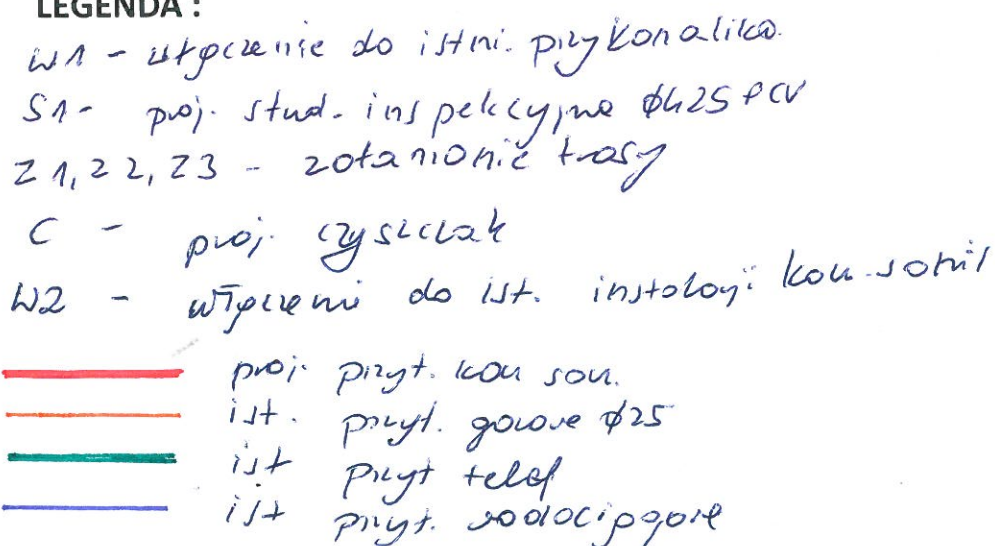 LEGENDA :
W1 - włączenie do istni. przykanalika
S1- proj. stud. inspekcyjna ø425 PCV
Z1, Z2, Z3 - załamanie trasy
C - proj. czyszczak
W2 - włączeni do ist. instalacji kan. sanit
proj. przył. kan san.
ist. przył. gazowe ø25
ist przył telef
ist przył. wodociągowe